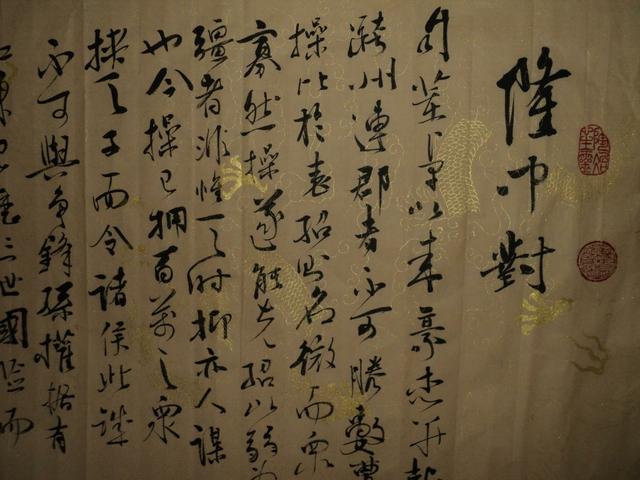 隆中對
自董卓以來豪杰并起
跨州連郡者不可勝數曹
操比於袁紹則名微而眾
寡然操遂能克紹以弱為
彊者非惟天時抑亦人謀
也今操已擁百萬之眾
挟天子而令諸侯此誠
不可與争鋒孫權据有
江東已歷三世國险而